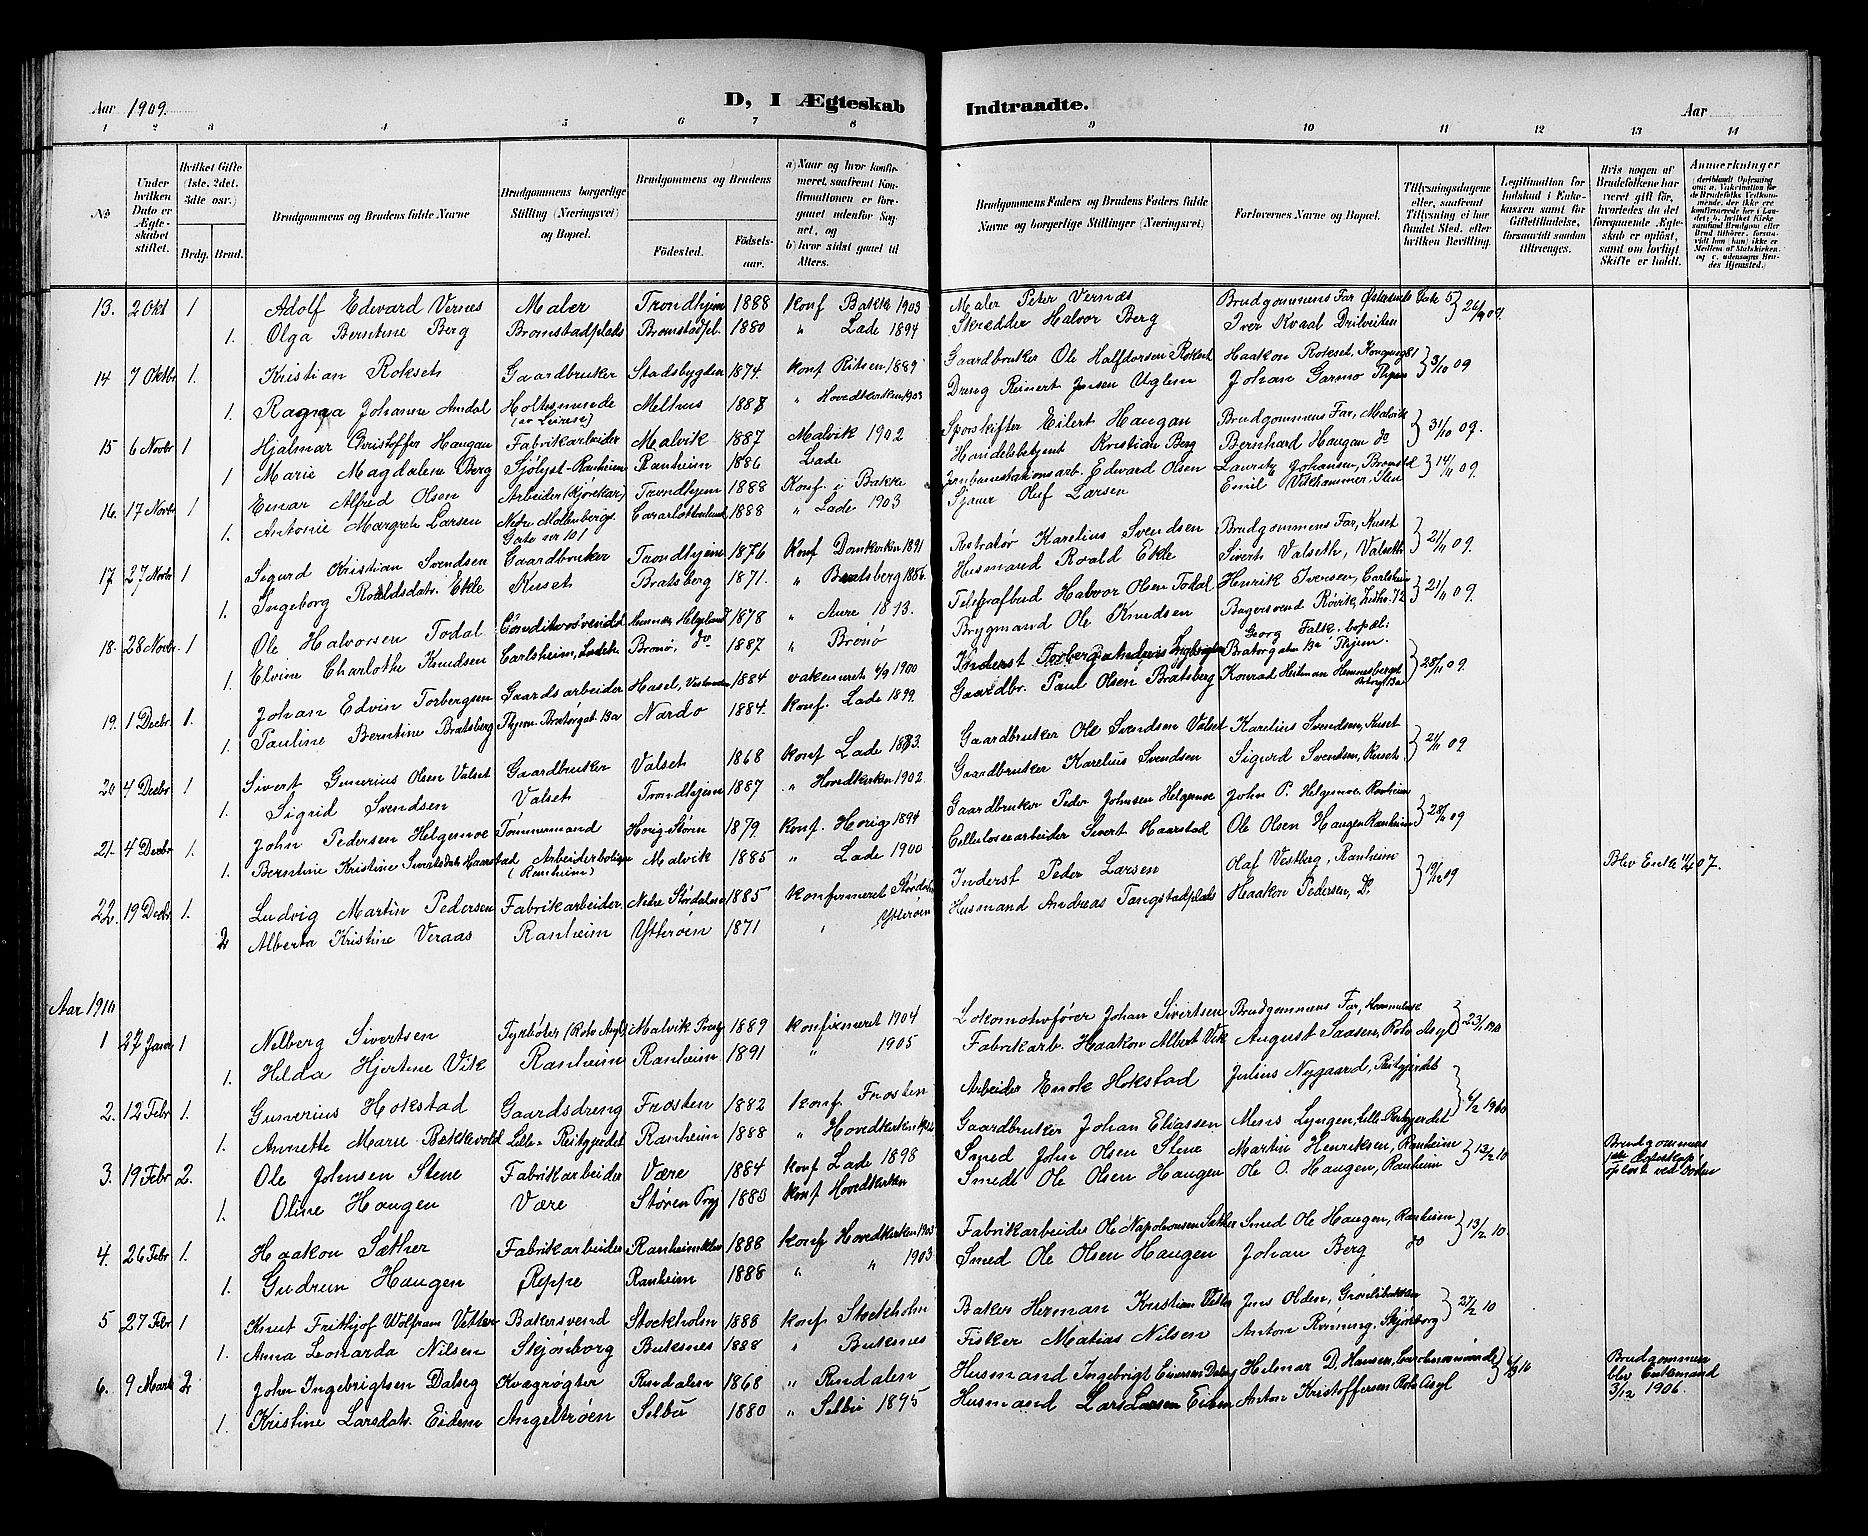 Aar 1909. D, I Ægteskab Indtraadte. Aar
1 2 3 4 5 6 7 8 9 10 11 12 13 14
No
Under hvilken Dato er Ægteskabet stiftet.
Hvilket Gifte (1ste, 2det, 3die osv.)
Brdg. Brud.
Brudgommens og Brudens fulde Navne
Brudgommens borgerlige Stilling (Næringsvei) og Bopæl.
Brudgommens og Brudens
Fødested. Fødselsaar.
a) Naar og hvor konfirmeret, saafremt Konfirmationen er foregaaet udenfor Sognet, og b) hvor sidst gaaet til Alters.
Brudgommens Faders og Brudens Faders fulde Navne og borgerlige Stillinger (Næringsvei)
Forlovernes Navne og Bopæl.
Tillysningsdagene eller, saafremt Tillysning ei har fundet Sted, efter hvilken Bevilling.
Legitimation for Indskud i Enkekassen samt for Giftetilladelse, forsaavidt saadan tiltrænges.
Hvis nogen af Brudefolkene har været gift før, hvorledes da det foregaaende Ægteskab er opløst, samt om lovligt Skifte er holdt.
Anmerkninger
13. 2 Okt 1 Adolf Edvard Vernes Maler Trondhjem 1888 konf Bakke 1903 Maler Peter Vernæs Brudgommens Far 26/9 09.
1. Olga Berntine Berg Bromstadplads Bromstadpl. 1880 " Lade 1894 Skrædder Halvor Berg Iver Kvaal
14 7 Oktbr 1. Kristian Rokseth Gaardbruker Stadsbygden 1874. konf Ritsen 1889 Gaardbruker Ole Halfdorsen Rokset Haakon Rokset, 3/10 09
1. Ragna Johanne Amdal Holtermunde Melhus 1888 " Hovedkirken 1903 Dreng Reinert Jensen Uglem Johan Garmo Thjem
15 6 Novbr 1 Hjalmar Christoffer Haugan Fabrikarbeider Malvik 1887 Malvik 1902 Sporskifter Eilert Haugan Brudgommens Far, Malvik 31/10 09.
1 Marie Magdalene Berg Sjølyst-Ranheim Ranheim 1886 Lade Handelsbetjent Kristian Berg Bernhard Haugan do
16. 17 Novbr 1 Einar Alfred Olsen Arbeider (Kjørekar) Trondhjem 1888 Konf. i Bakke Jernbanestationsarb. Edvard Olsen Lauritz Johansen, 14/11 09.
1. Antonie Margreth Larsen Nedre Møllenbergs. Gate nr 101 Charlottenlund 1888 " Lade 1903 Sjauer Oluf Larsen Emil Vikhammer,
17 27 Novbr 1 Sigurd Kristian Svendsen Gaardbruker Trondhjem 1876 Konf Domkirken 1891 Restratør Karelius Svendsen Brudgommens Far, Ruset 21/11 09.
1. Ingeborg Roaldsdatr. Ekle Ruset Bratsberg 1871. " Bratsberg 1886. Husmand Roald Ekle Sivert Valseth, Valseth
18. 28 Novbr. 1 Ole Halvorsen Todal 1878 " Aure 1893. Telegrafbud Halvor Olsen Todal Henrik Iversen, Carlsheim 21/11 09.
1. Elvine Charlothe Knudsen Carlsheim, Ladehn Brønø, do 1887 " Brønø Brygmand Ole Knudsen Bagersvend Røvik,
19. 1 Decbr 1. Johan Edvin Torbergsen Gaardsarbeider Hasel, 1884 vakcineret 4/9 1900 Inderst Torberg Georg Falk 28/11 09.
1. Pauline Berntine Bratsberg Thjem Bratørgat. 13a Nardo 1884. konf. Lade 1899. Gaardbr. Paul Olsen Bratsberg Konrad Heitman
20 4 Decbr 1 Sivert Gunerius Olsen Valset Gaardbruker Valset 1868 konf Lade 1883. Gaardbruker Ole Svendsen Valset Karelius Svendsen, Ruset 21/11 09
1. Sigrid Svendsen Valset Trondhjem 1887 " Hovedkirken 1902. Gaardbruker Karelius Svendsen Sigurd Svendsen, Ruset.
21. 4 Decbr 1. John Pedersen Helgemoe Tømmermand Horig Støren 1879 konf. Horig 1894 Gaardbruker Peder Johnsen Helgemoe John P. Helgemoe, Ranheim 28/11 09
1. Berntine Kristine Sivertsdatr Haarstad Arbeiderbolig (Ranheim) Malvik 1885 " Lade 1900 Cellulosearbeider Sivert Haarstad Ole Olsen Haugen Ranheim
22. 19 Decbr 1. Ludvig Martin Pedersen Fabrikarbeider. Nedre Stördalen 1885 konfirmeret Stördalen Inderst Peder Larsen Olaf Vestberg, Ranheim 19/12 09 Blev Enke 07.
2 Alberta Kristine Veraas Ranheim Ytterøen 1871 " Ytterøen Husmand Andreas Tangstadplads Haakon Pedersen, Do
Aar 1910
1 27 Janr 1 Nilberg Sivertsen Fyrbøter (Rotv Asyl) Malvik 1889 konfirmeret 1904 Lokomotivfører Johan Sivertsen Brudgommens Far, 23/1 1910
1. Hilda Hjertine Vik Ranheim Ranheim 1891 " 1905 Fabrikarb. Haakon Albert Vik August Saasen, Rotv. Asyl
2. 12 Febr 1. Gunerius Hokstad Gaardsdreng Frosten 1882 konf. Frosten Arbeider Enok Hokstad Julius Nygaard, Reitgjerdet 6/2 1910
1. Annette Marie Bekkevold Lille-Reitgjerdet Ranheim 1888 " Hovedkirken Gaardbruker Johan Eliassen Mons Lyngen, Lille-Reitgjerdet
3. 19 Febr 2. Ole Johnsen Stene Fabrikarbeider Være 1884 konf Lade 1898 Smed John Olsen Stene Martin Henriksen, Ranheim 13/2 10 Brudgommens 1ste Ægteskab opløst ved Døden
1. Oline Haugen Være Støren 1883 konf Hovedkirken Smedt Ole Olsen Haugen Ole O. Haugen, Ranheim
4. 26 Febr 1. Haakon Sæther Fabrikarbeider Ranheimsklev 1888 konf Hovedkirken 1903 Fabrikarbeider Ole Napoleonsen Sæther Smed Ole Haugen, Ranheim 13/2 10.
1. Gudrun Haugen Reppe Ranheim 1888 " " 1903 Smed Ole Olsen Haugen Johan Berg do
5 27 Febr 1 Knut Frithjof Wolfram Vetter Bakersvend Stockholm 1888 konf Stockholm Baker Herman Kristian Vetter Jens Olden, Grønlibakken 27/2 10
1. Anna Leonarda Nilsen Skjønborg Buksnes 1888 " Buksnes Fisker Matias Nilsen Anton Rønning, Skjønborg
6. 9 Marts 2 John Ingebrigtsen Dalseg Kvægrøgter Rendalen 1868 " Rendalen Husmand Ingebrigt Einersen Dalseg Hilmar D. Hansen, Brudgommen blev Enkemand 3/12 1906.
1. Kristine Larsdatr. Eidem Angeltrøen Selbu 1880 " Selbu 1895 Husmand Lars Larsen Eidem Anton Kristoffersen Rotv. Asyl